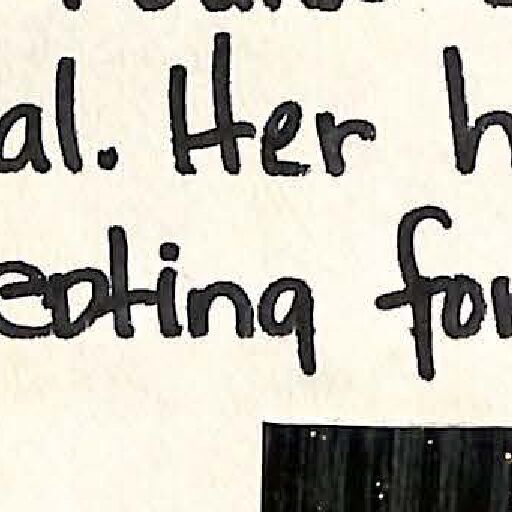 al. Her h
eating for